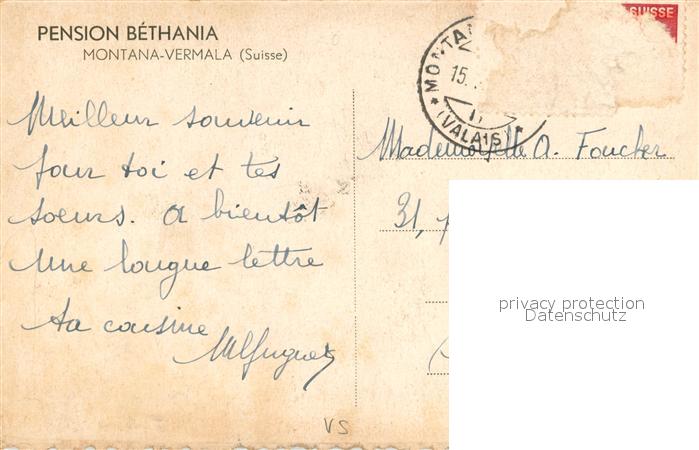 PENSION BÉTHANIA
MONTANA-VERMALA (Suisse)
SUISSE
MONTA
15.
(VALAIS)
Meilleur souvenir
pour toi et tes
soeurs. A bientôt
une longue lettre
Ta cousine
Mademoiselle A. Foucher
31,
privacy protection
Datenschutz
VS